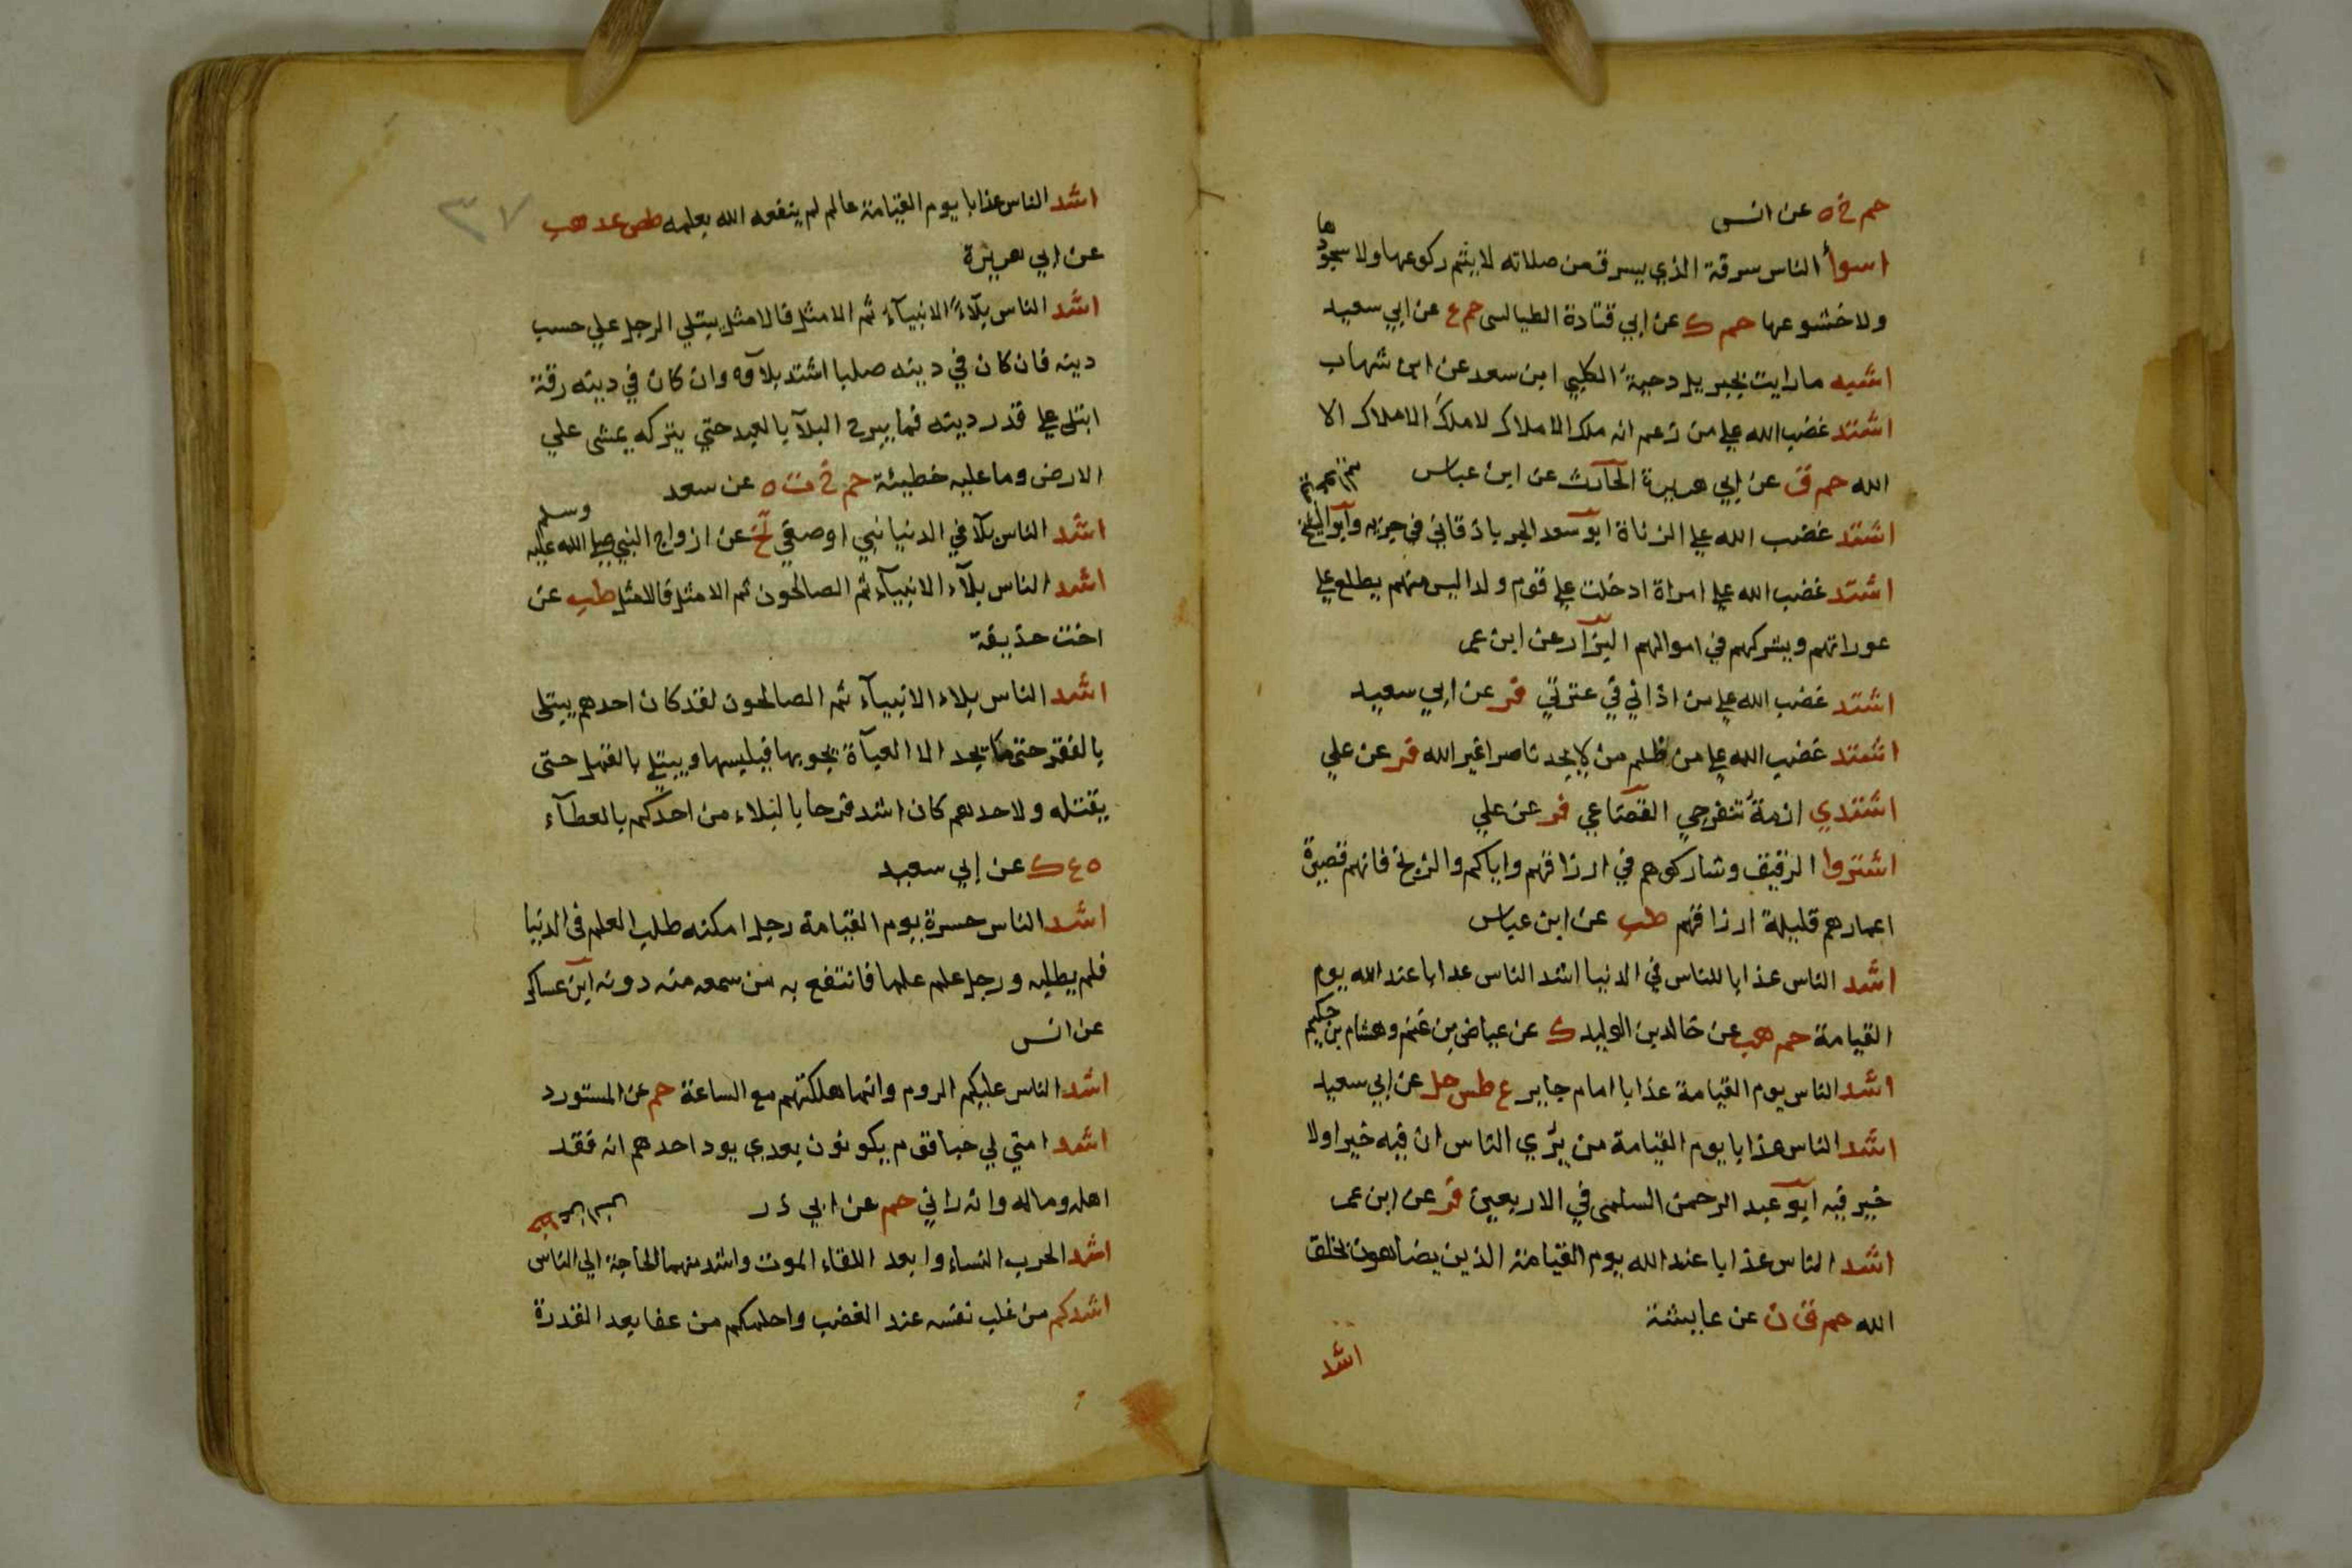 حم خ ه عن انس
اسوأ الناس سرقة الذي يسرق من صلاته لا يتم ركوعها ولا سجودها
ولا خشوعها حم ك عن ابي قتادة الطيالسى حم ع عن ابي سعيد
اشبه ما رايت بجبريل دحية الكلبي ابن سعد عن ابن شهاب
اشتد غضب الله علي من زعم انه ملك الاملاك لا ملك الاملاك الا
الله حم ق عن ابي هريرة الحارث عن ابن عباس
اشتد غضب الله علي الزناة ابو سعد الجرباذقاني في جزيه وابو الشيخ
اشتد غضب الله علي امراة ادخلت علي قوم ولدا ليس منهم يطلع علي
عوراتهم ويشركهم في اموالهم البزار عن ابن عمر
اشتد غضب الله علي من اذاني في عترتي فر عن ابي سعيد
اشتد غضب الله علي من ظلم من لا يجد ناصرا غير الله فر عن علي
اشتدي ازمة تنفرجي القضاعي فر عن علي
اشتروا الرقيق وشاركوهم في ارزاقهم واياكم والزنج فانهم قصيرة
اعمارهم قليلة ارزاقهم طب عن ابن عباس
اشد الناس عذابا للناس في الدنيا اشد الناس عدابا عند الله يوم
القيامة حم هب عن خالد بن الوليد ك عن عياض بن غنم وهشام بن حكيم
اشد الناس يوم القيامة عذابا امام جاير ع طس حل عن ابي سعيد
اشد الناس عذابا يوم القيامة من يري الناس ان فيه خيرا ولا
خير فيه ابو عبد الرحمن السلمى في الاربعين فر عن ابن عمر
اشد الناس عذابا عند الله يوم القيامة الذين يضاهون بخلق
الله حم ق ن عن عايشة
اشد
٣٧
اشد الناس عذابا يوم القيامة عالم لم ينفعه الله بعلمه طص عد هب
عن ابي هريرة
اشد الناس بلآءً الانبيآء ثم الامثل فالامثل يبتلي الرجل علي حسب
دينه فان كان في دينه صلبا اشتد بلآوه وان كان في دينه رقة
ابتلى علي قدر دينه فما يبرح البلآ بالعبد حتي يتركه يمشى علي
الارض وما عليه خطيئة حم خ ت ه عن سعد
اشد الناس بلآ في الدنيا نبي او صفي تخ عن ازواج النبي صلي الله عليه وسلم
اشد الناس بلآء الانبيآء ثم الصالحون ثم الامثل فالامثل طب عن
اخت حذيفة
اشد الناس بلاء الانبيآء ثم الصالحون لقد كان احدهم يبتلى
بالفقر حتى ما يجد الا العبآة يجوبها فيلبسها ويبتلي بالقمل حتى
يقتله ولاحدهم كان اشد فرحا بالبلاء من احدكم بالعطآء
ه ع ك عن ابي سعيد
اشد الناس حسرة يوم القيامة رجل امكنه طلب العلم فى الدنيا
فلم يطلبه ورجل علم علما فانتفع به من سمعه منه دونه ابن عساكر
عن انس
اشد الناس عليكم الروم وانما هلكتهم مع الساعة حم عن المستورد
اشد امتي لي حبا قوم يكونون بعدي يود احدهم انه فقد
اهله وماله وانه راني حم عن ابي ذر
اشد الحرب النساء وابعد اللقاء الموت واشد منهما الحاجة الي الناس
اشدكم من غلب نفسه عند الغضب واحلمكم من عفا بعد القدرة